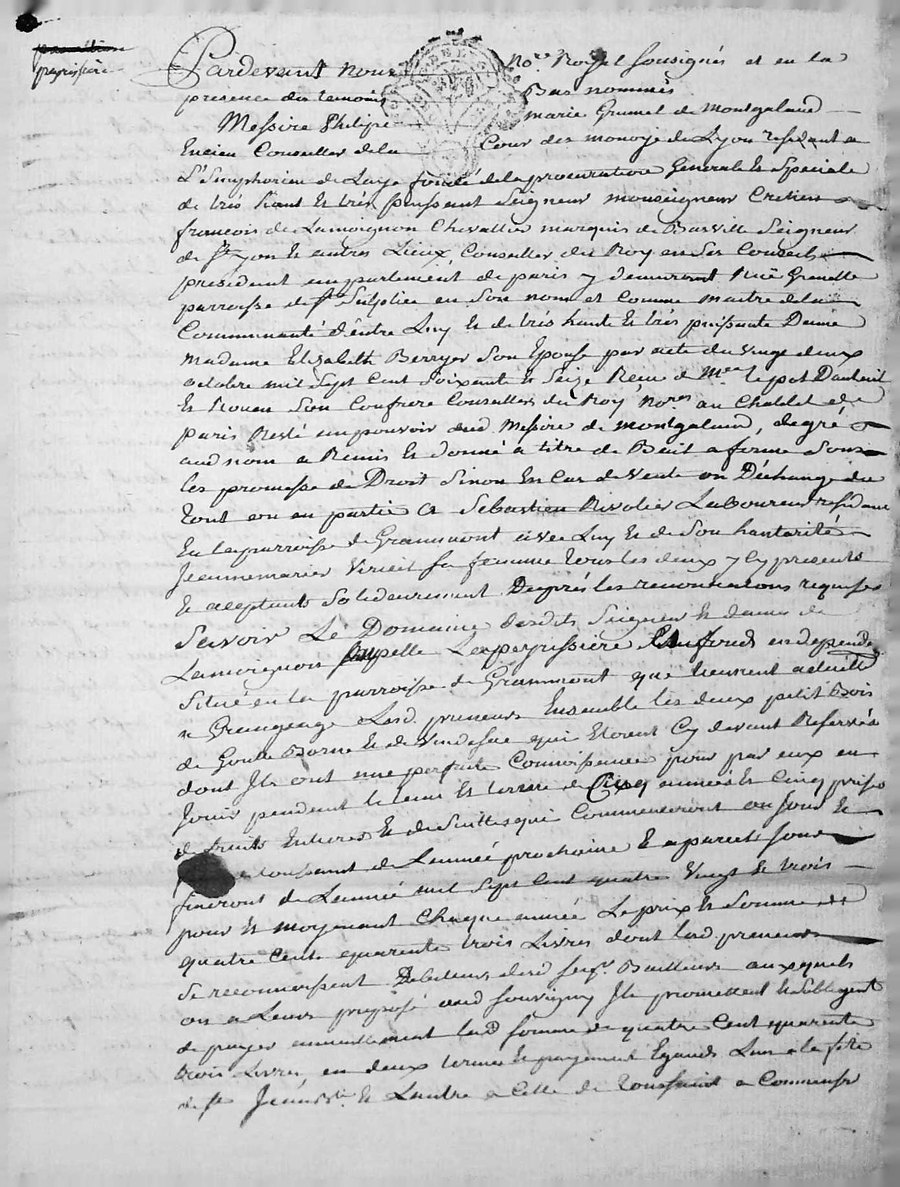 peyrissiere
Pardevant nous no.re Royal sousignés et en la
presence des temoins Bas nommés
Messire Philipe marie Grumel de Montgaland
Encien Conseiller de la Cour des monoye de Lyon resident a
St Simphorien de Laye fondé de la procuration Generalle et Speciale
de trés haut et trés puissant Seigneur monseigneur Cretien
francois de Lamoignon Chevallier marquis de Basville Seigneur
de St yon et autres Lieux, Conseiller du Roy en ses Conseils
president en parlement de paris y demeurant Ruë Grenelle
parroisse de St Sulplice en son nom et Comme maitre de la
Communauté d'entre Luy et de trés haute et trés puissante Dame
Madame Elizabeth Berryer Son Epouse par acte du vingt deux
octobre mil Sept Cent Soixante et Seize Recu de Me le pot Dauteuil
et Son Confrere Conseillers du Roy nores au Chatelet de
paris Resté en pouvoir dud Messire de Montgaland, de gré
aud nom a Remis et donné a titre de Bail a ferme Sous
les promesse de Droit Sinon En Cas de Vente ou D'échange du
tout ou en partie a Sebastien Rivolier Laboureur residant
En la parroisse de Grammont avec Luy et de Son hautorité
Jeannemarie Sa femme tous les deux y Cy presents
et aceptants Solidairement D'après les renonciations requises
Scavoir Le Domaine desdits Seigneur et dame de
Lamoignon appellé Lapeyrissiere Ses fonds en dependt
Situé en la parroisse de Grammont que tiennent actuellt
n Grangeage Lesd. preneurs Ensemble les deux petit Bois
de Goutte Borne et de qui Etoient Cy devant Reservés
dont Ils ont une parfaite Connoissance pour par eux en
Jouir pendant le tems et terme de Cinq années et Cinq prises
de fruits Entieres et de Suittes qui Commenceront au jour et
toussaint de Lannée prochaine et a pareil jour
finiront de Lannée mil Sept Cent quatre Vingt et trois
pour et moyenant Chaque année Le prix et Somme de
quatre Cents quarente trois Livres dont lesd preneurs
Se reconnoissent Debiteurs desd seigr Bailleurs auxquels
ou a Leurs preposé aud Souvigny Ils promettent et Soblegent
de payer annuellement lad Somme de quatre Cent quarente
trois Livres, en deux termes et payement Egaux Lun a la fete
de St Jean Bte et Lautre a Celle de toussaint a Commense